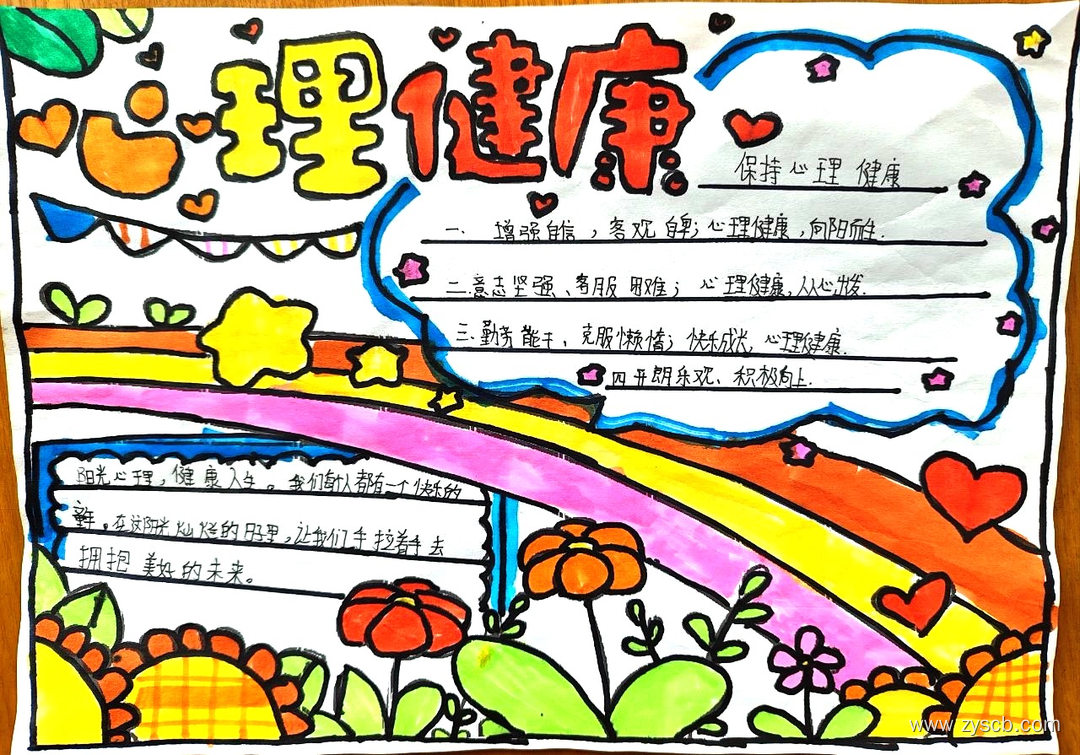 心理健康
保持心理健康
一、增强自信,客观自卑;心理健康,向阳而生.
二.意志坚强、客服困难;心理健康,从心出发.
三.勤劳能干、克服懒惰;快乐成长,心理健康.
四开朗乐观、积极向上.
阳光心理,健康人生。我们每人都有一个快乐的
童年。在这阳光灿烂的日子里,让我们手拉着手去
拥抱美好的未来。
www.zyscb.com